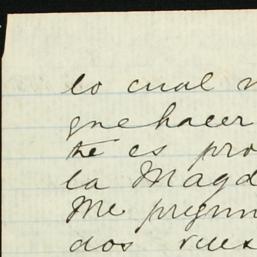 lo cual
que hacer
te es pro
la Magd
Me pregun
dos